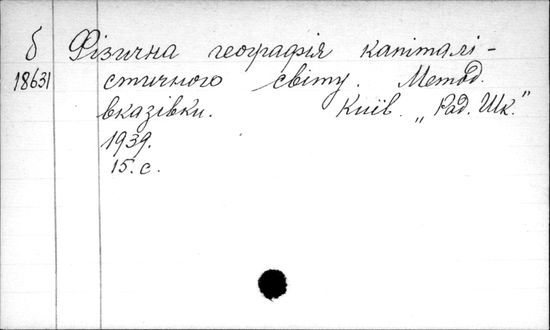 б Фізична географія капіталі-
18631 стичного світу. Метод.
вказівки. Київ. „Рад. Шк."
1939.
15. с.